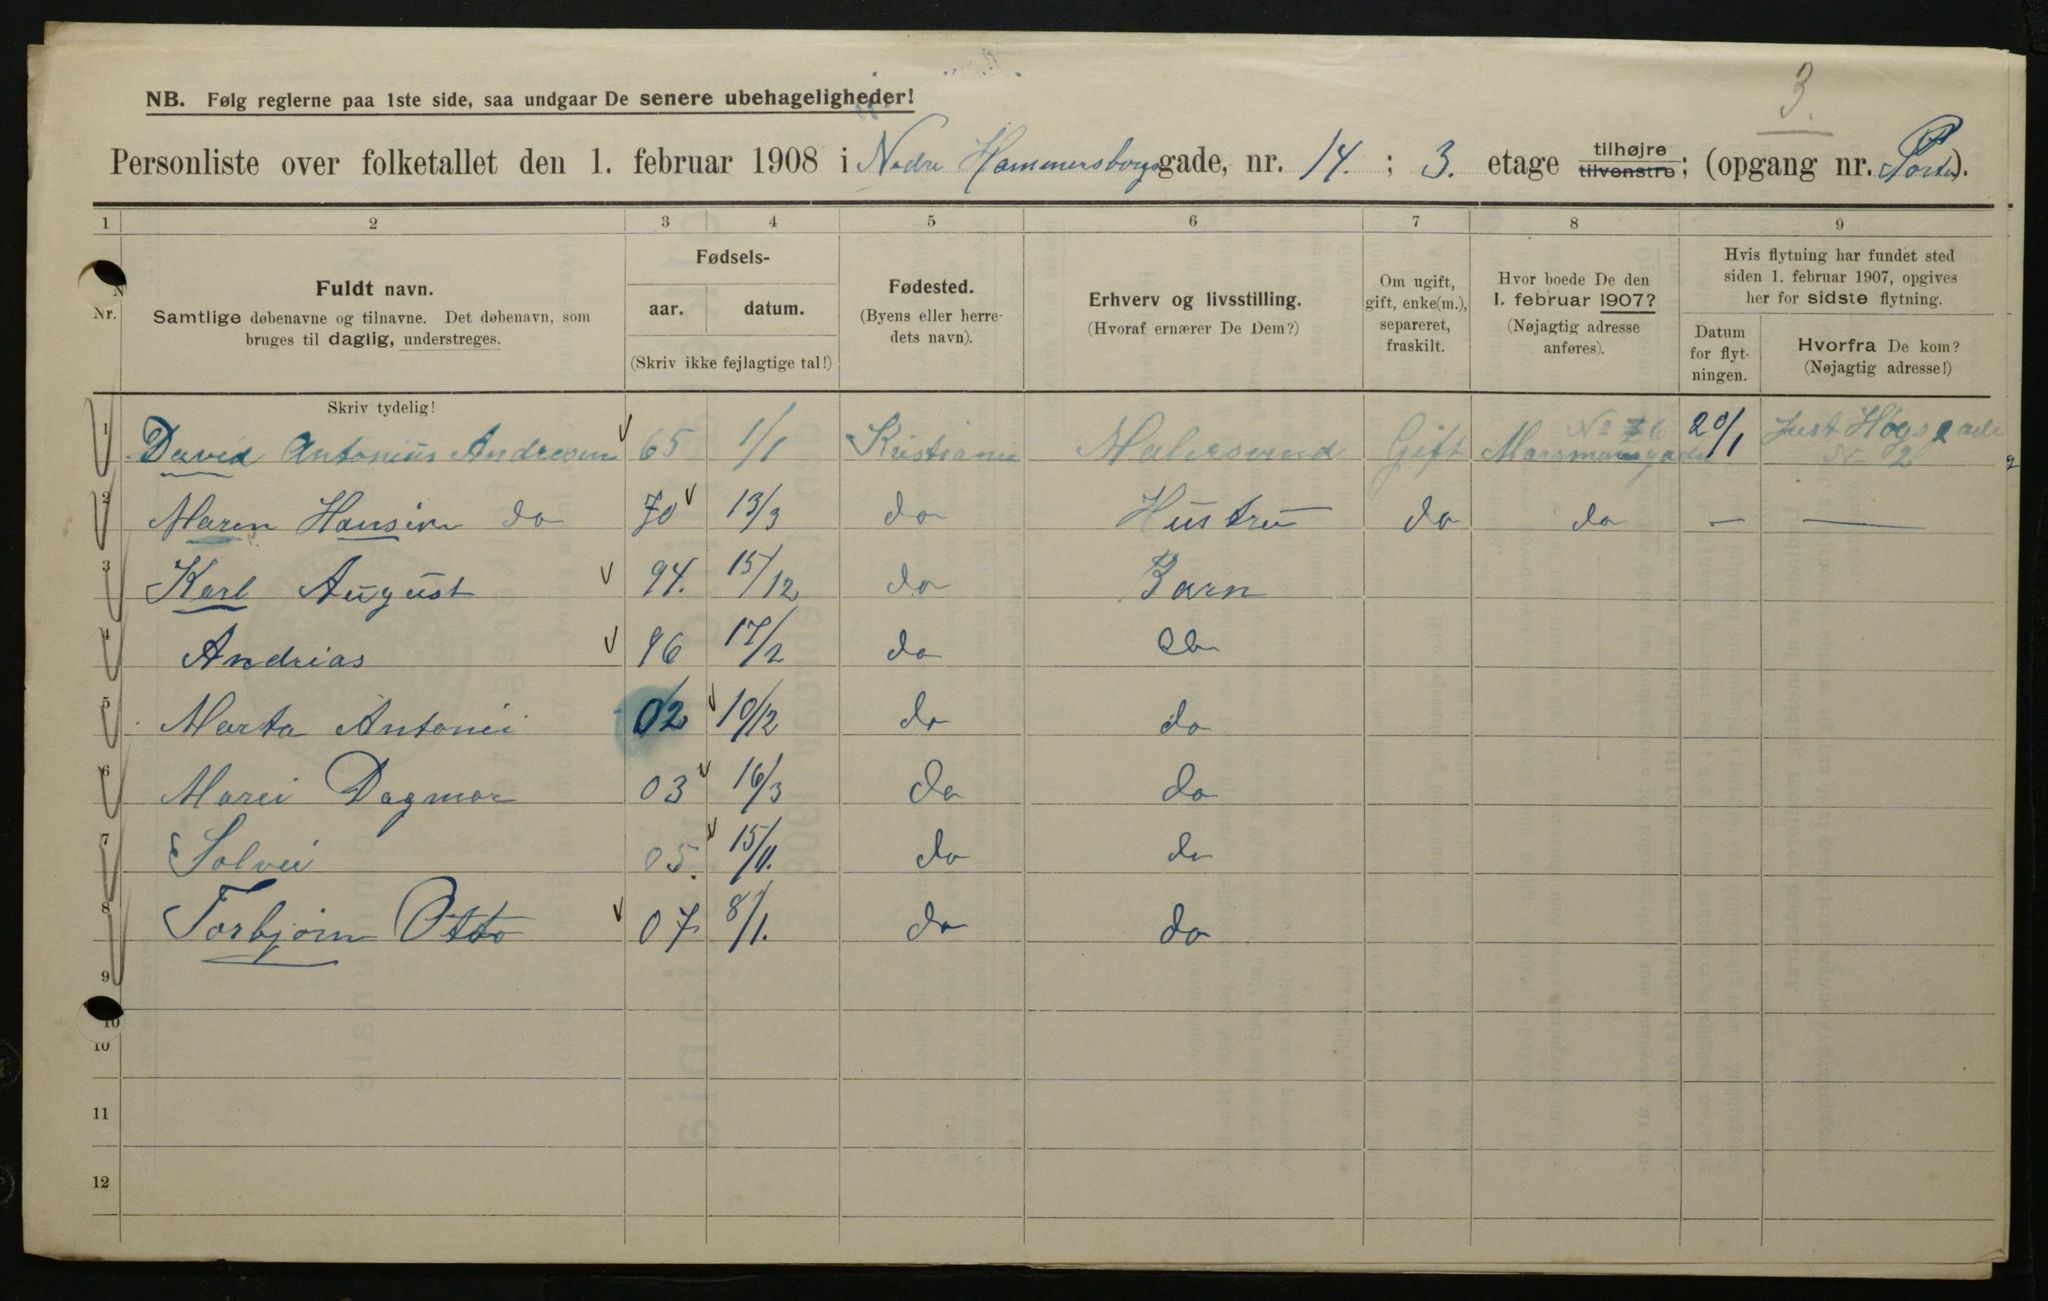 3.
NB. Følg reglerne paa 1ste side, saa undgaar De senere ubehageligheder!
Personliste over folketallet den 1. februar 1908 i Nedre Hammersborg gade, nr. 14. ; 3. etage tilhøjre tilvenstre; (opgang nr. Porten).
1 2 3 4 5 6 7 8 9
Nr.
Fuldt navn.
Samtlige døbenavne og tilnavne. Det døbenavn, som
bruges til daglig, understreges.
Skriv tydelig!
Fødsels-
aar. datum.
(Skriv ikke fejlagtige tal!)
Fødested.
(Byens eller herre-
dets navn).
Erhverv og livsstilling.
(Hvoraf ernærer De Dem?)
Om ugift,
gift, enke(m.),
separeret,
fraskilt.
Hvor boede De den
1. februar 1907?
(Nøjagtig adresse
anføres).
Hvis flytning har fundet sted
siden 1. februar 1907, opgives
her for sidste flytning.
Datum
for flyt-
ningen.
Hvorfra De kom?
(Nøjagtig adresse!)
1 David Antonius Andresen 65 1/1 Kristiania Malersvend Gift Marsmansgade No 20/1 Just Høgsgade No 2
2 Maren Hansine do 70 13/3 do Hustru do do — —
3 Karl August 94. 15/12 do Barn
4 Andrias 96 17/2 do do
5 Marta Antonie 02 10/12 do do
6 Marei Dagmar 03 16/3 do do
7 Solvei 05. 15/11. do do
8 Torbjørn Otto 07 8/1. do do
9
10
10
11
12